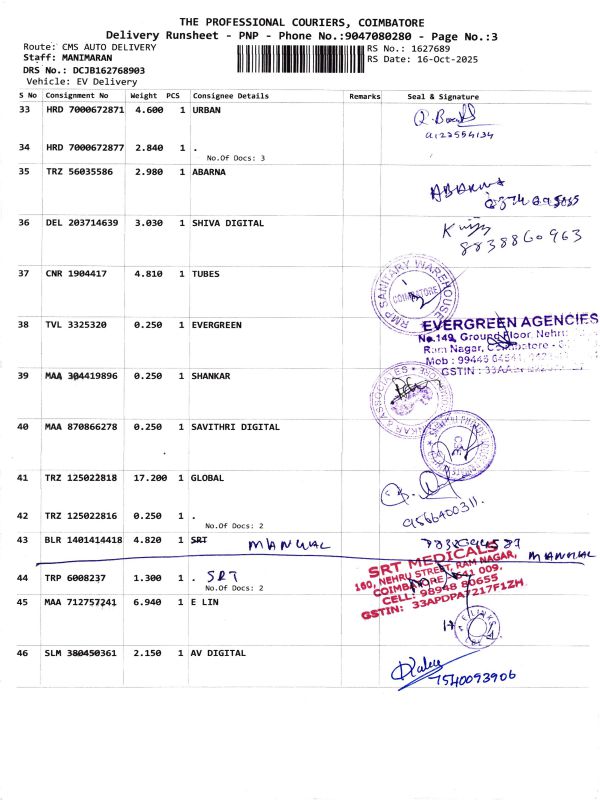 THE PROFESSIONAL COURIERS, COIMBATORE
Delivery Runsheet - PNP - Phone No.:9047080280 - Page No.:3
Route: CMS AUTO DELIVERY RS No.: 1627689
Staff: MANIMARAN RS Date: 16-Oct-2025
DRS No.: DCJB162768903
Vehicle: EV Delivery
S No Consignment No Weight PCS Consignee Details Remarks Seal & Signature
33 HRD 7000672871 4.600 1 URBAN
34 HRD 7000672877 2.840 1 .
No.Of Docs: 3
35 TRZ 56035586 2.980 1 ABARNA
ABARNA
36 DEL 203714639 3.030 1 SHIVA DIGITAL
8838860963
37 CNR 1904417 4.810 1 TUBES
RMP SANITARY WAREHOUSE
COIMBATORE
38 TVL 3325320 0.250 1 EVERGREEN
EVERGREEN AGENCIES
No.149, Ground Floor, Nehru
Ram Nagar, Coimbatore -
Mob : 99446
GSTIN : 33AA
39 MAA 304419896 0.250 1 SHANKAR
& ASSOCIATES
40 MAA 870866278 0.250 1 SAVITHRI DIGITAL
41 TRZ 125022818 17.200 1 GLOBAL
42 TRZ 125022816 0.250 1 .
No.Of Docs: 2
9566400311.
43 BLR 1401414418 4.820 1 SRT MANUAL
MANUAL
44 TRP 6008237 1.300 1 . SRT
No.Of Docs: 2
SRT MEDICALS
160, NEHRU STREET, RAM NAGAR,
COIMBATORE 641 009.
CELL: 98948 80655
GSTIN: 33APDPA7217F1ZH
45 MAA 712757241 6.940 1 E LIN
46 SLM 380450361 2.150 1 AV DIGITAL
7540093906